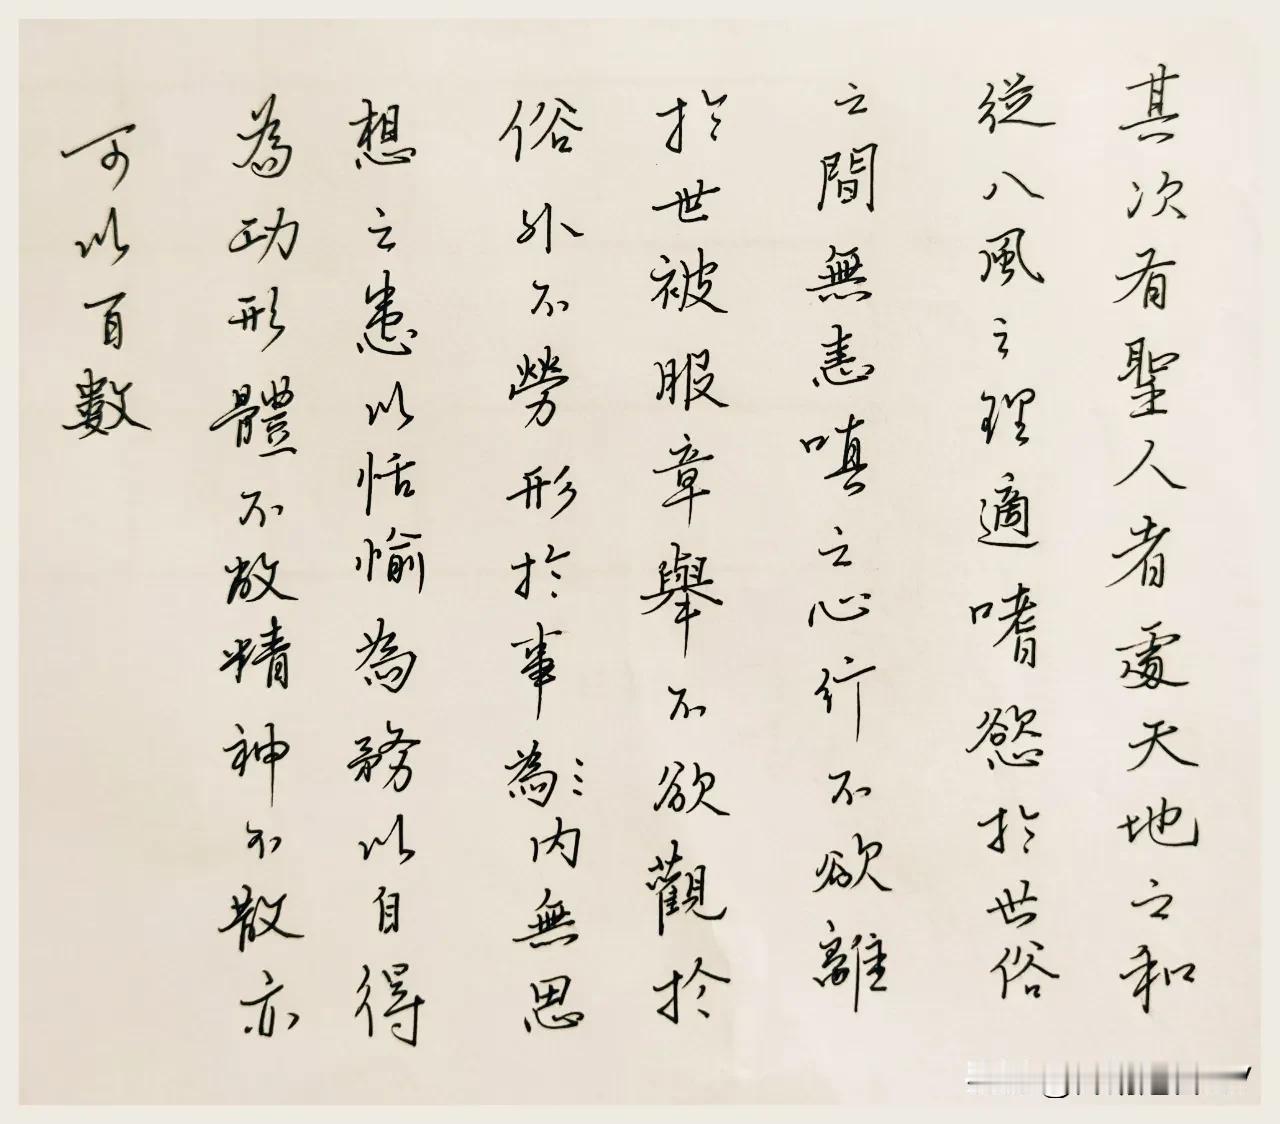 其次有聖人者處天地之和
從八風之理適嗜慾於世俗
之間無恚嗔之心行不欲離
於世被服章舉不欲觀於
俗外不勞形於事為内無思
想之患以恬愉為務以自得
為功形體不敝精神不散亦
可以百數